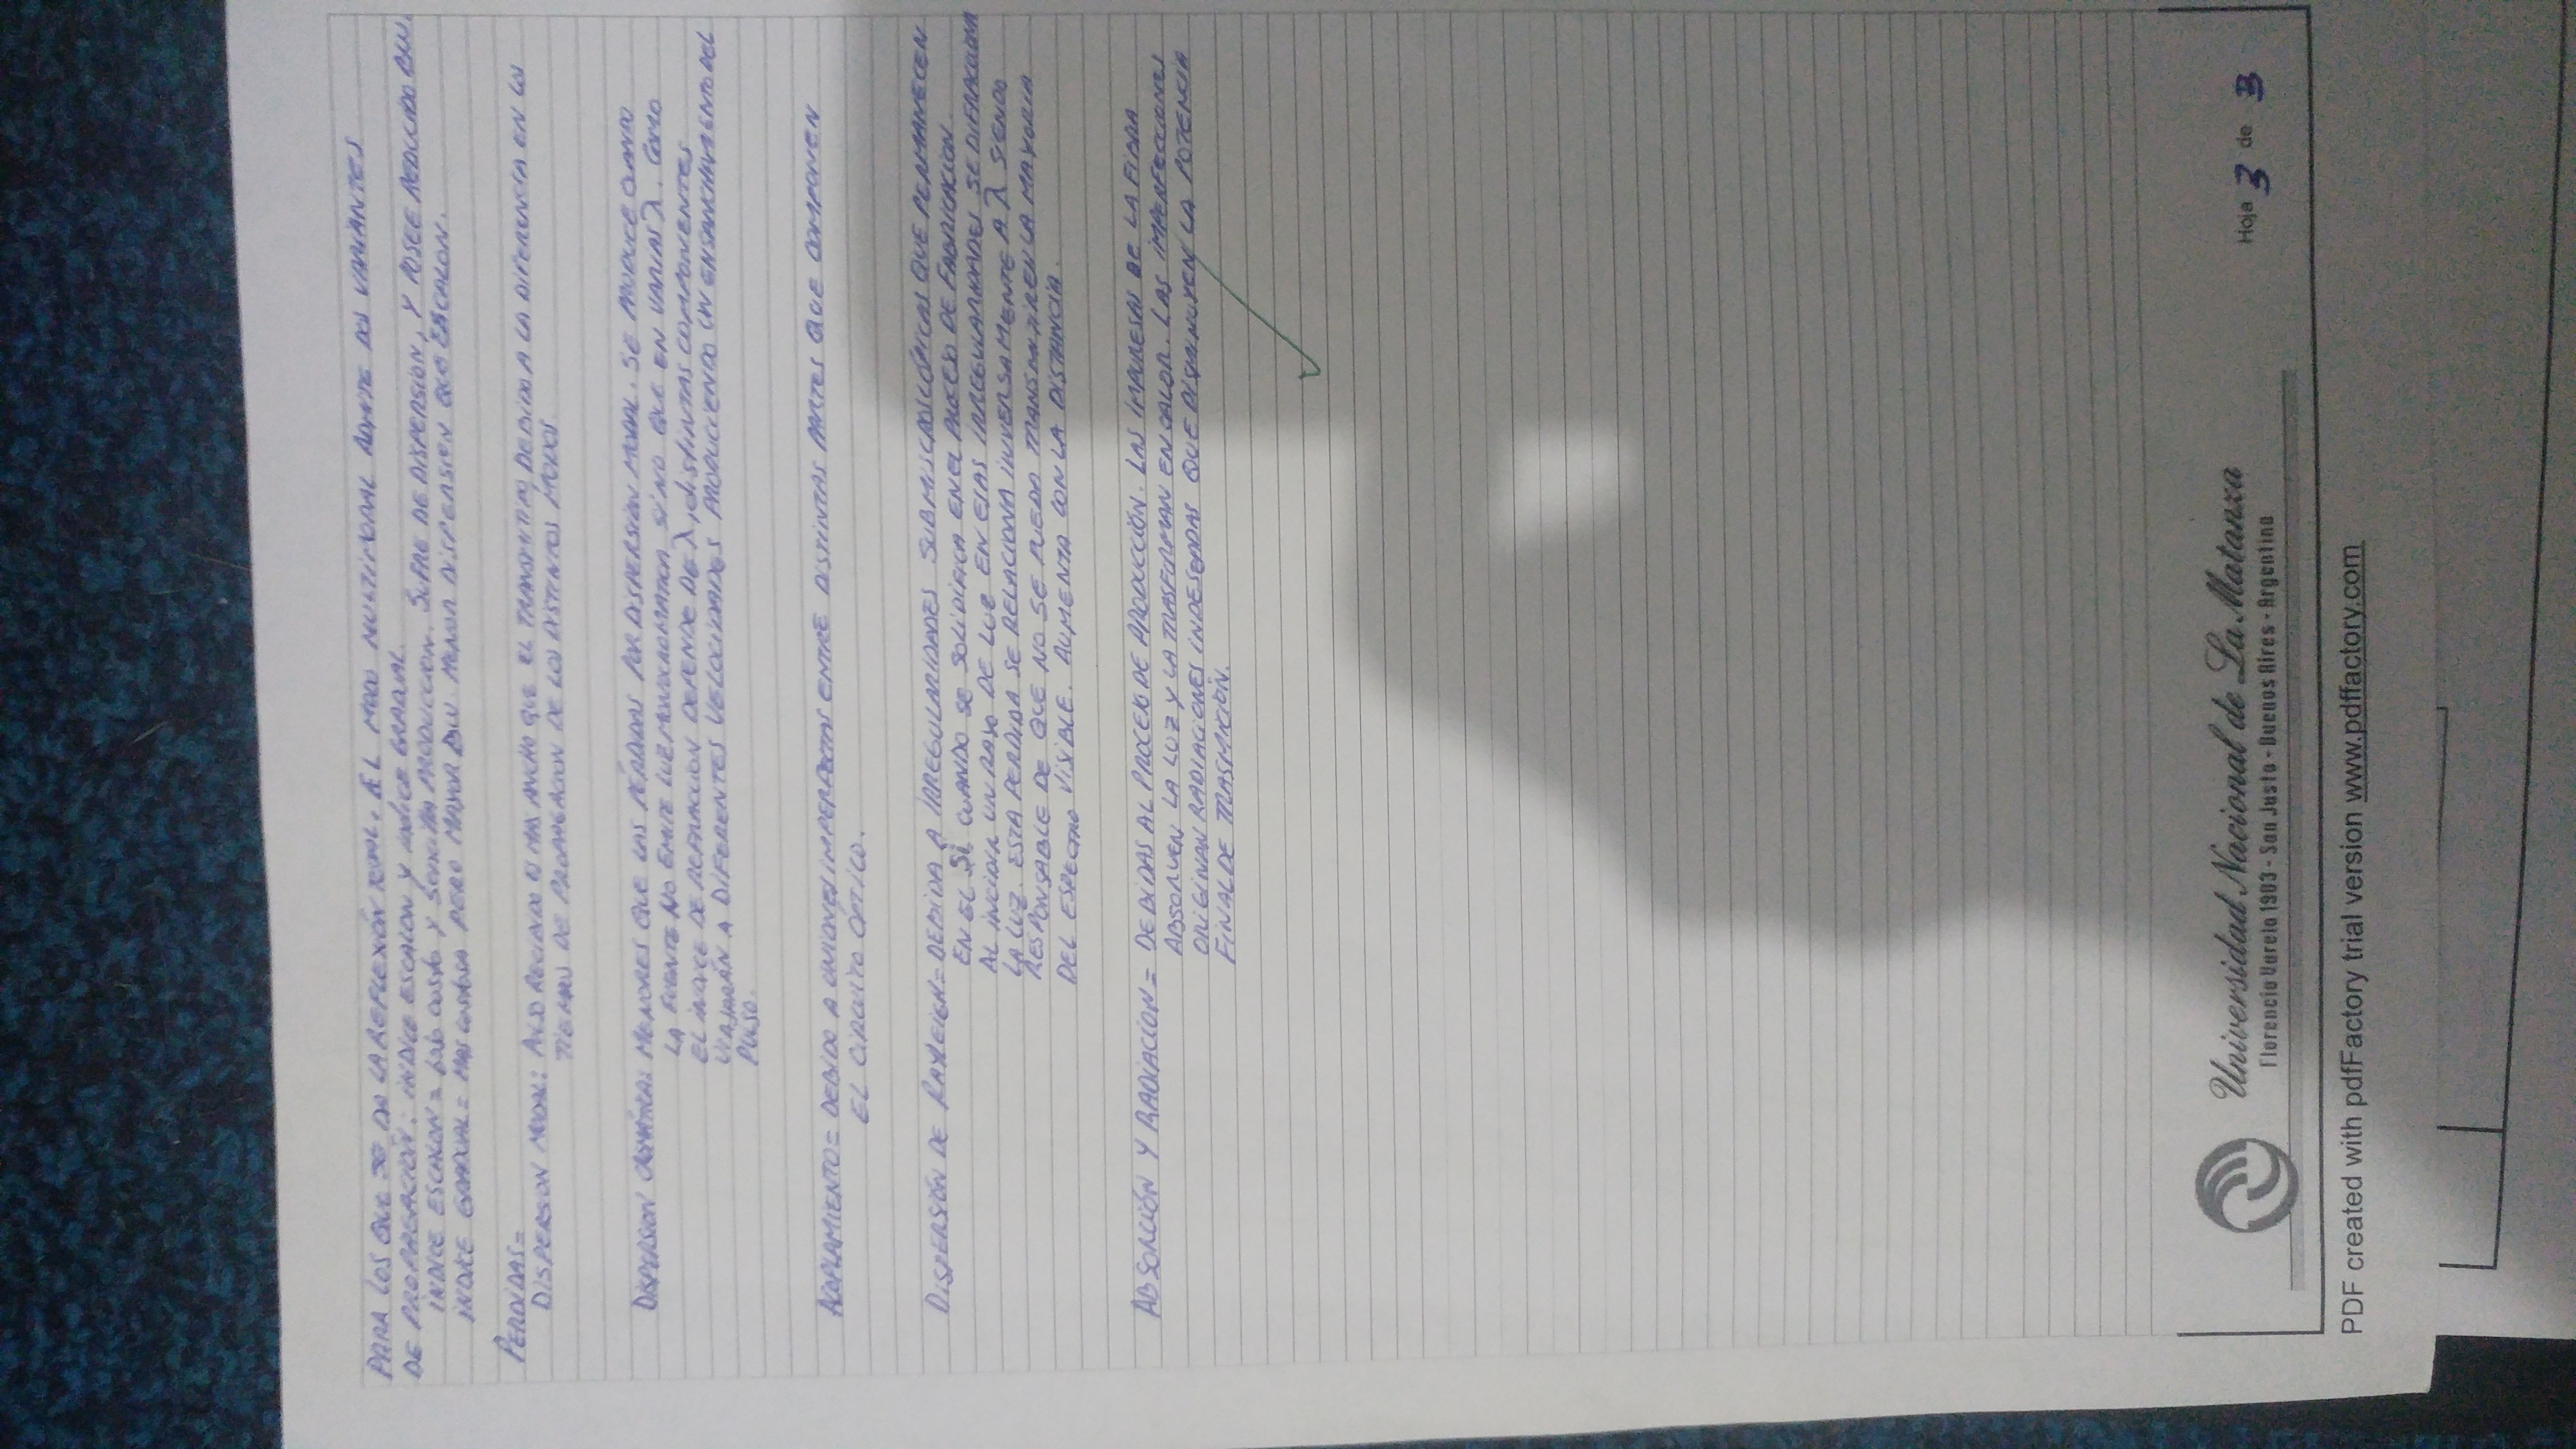 PARA LOS QUE SE DA LA REFLEXIÓN TOTAL. EL MODO MULTIMODAL ADMITE DOS VARIANTES
DE PROPAGACIÓN: INDICE ESCALON Y INDICE GRADUAL.
INDICE ESCALON = bajo costo y sencilla PRODUCCION. SUFRE DE DISPERSION, Y POSEE REDUCIDO BW.
INDICE GRADUAL = MAS costosa PERO MAYOR BW. MENOR DISPERSION QUE ESCALON.
PERDIDAS=
DISPERSION MODAL: PULSO RECIBIDO ES MAS ANCHO QUE EL TRANSMITIDO, DEBIDO A LA DIFERENCIA EN LOS
TIEMPOS DE PROPAGACION DE LOS DISTINTOS MODOS
DISPERSION CROMÁTICA: MENORES QUE LAS PÉRDIDAS POR DISPERSIÓN MODAL. SE PRODUCE CUANDO
LA FUENTE NO EMITE LUZ MONOCROMATICA, SINO QUE EN VARIAS λ. COMO
EL INDICE DE REFRACCION DEPENDE DE λ, distINTAS COMPONENTES
VIAJARÁN A DIFERENTES VELOCIDADES PRODUCIENDO UN ENSANCHAMIENTO DEL
PULSO.
ACOPLAMIENTO = DEBIDO A UNIONES IMPERFECTAS ENTRE DISTINTAS PARTES QUE COMPONEN
EL CIRCUITO ÓPTICO.
DISPERSIÓN DE RAYLEIGH = DEBIDA A IRREGULARIDADES SUBMISCROSCÓPICAS QUE PERMANECEN
EN EL Si CUANDO SE SOLIDIFICA EN EL PROCESO DE FABRICACION
AL INCIDIR UN RAYO DE LUZ EN ESAS IRREGULARIDADES SE DIFRACCIONA
LA LUZ. ESTA PERDIDA SE RELACIONA INVERSAMENTE A λ SIENDO
RESPONSABLE DE QUE NO SE PUEDA TRANSMITIR EN LA MAYORIA
DEL ESPECTRO VISIBLE. AUMENTA CON LA DISTANCIA.
ABSORCIÓN Y RADIACION = DEBIDAS AL PROCESO DE PRODUCCIÓN. LAS IMPURESAS DE LA FIBRA
ABSORVEN LA LUZ Y LA TRASFORMAN EN CALOR. LAS IMPERFECCIONES
ORIGINAN RADIACIONES INDESEADAS QUE DISMINUYEN LA POTENCIA
FINAL DE TRASMICIÓN.
Universidad Nacional de La Matanza
Florencio Varela 1903 - San Justo - Buenos Aires - Argentina
Hoja 3 de 3
PDF created with pdfFactory trial version www.pdffactory.com